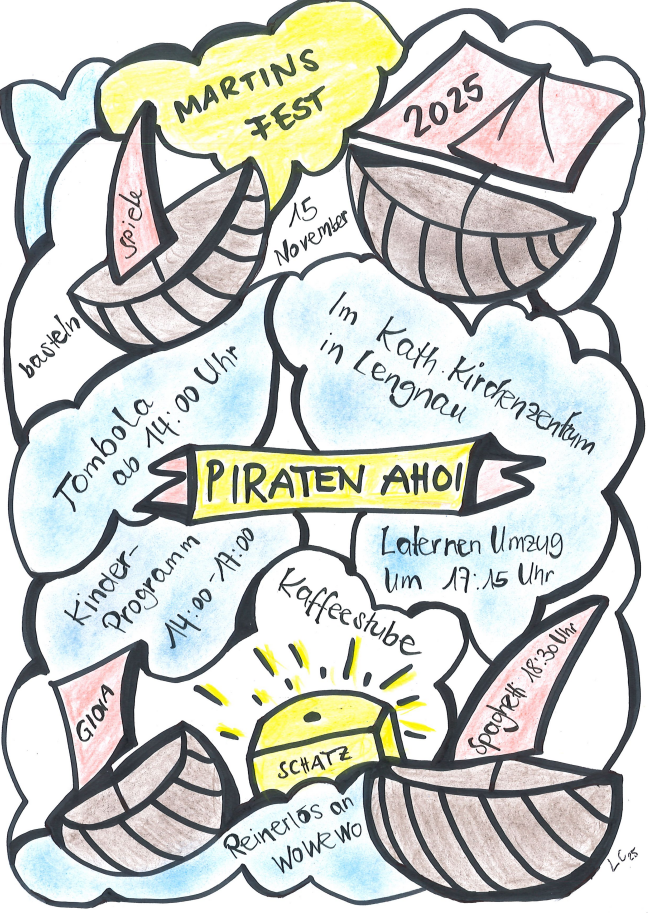 MARTINS
FEST
2025
spiele
15
November
basteln
Im Kath. Kirchenzentrum
in Lengnau
Tombola
ab 14:00 Uhr
PIRATEN AHOI
Kinder-
Programm
14:00-17:00
Laternen Umzug
um 17:15 Uhr
Kaffeestube
GIOIA
spaghetti 18:30 Uhr
SCHATZ
Reinerlös an
WOWEWO
LC 25